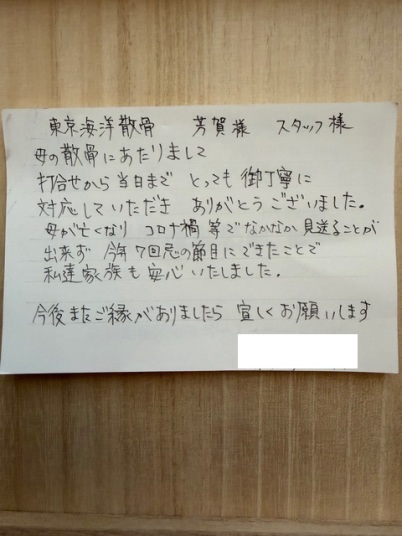 東京海洋散骨　芳賀様　スタッフ様
母の散骨にあたりまして
打合せから当日まで　とっても御丁寧に
対応していただき　ありがとうございました。
母が亡くなり　コロナ禍等でなかなか見送ることが
出来ず　今年7回忌の節目にできたことで
私達家族も安心いたしました。
今後またご縁がありましたら　宜しくお願いします